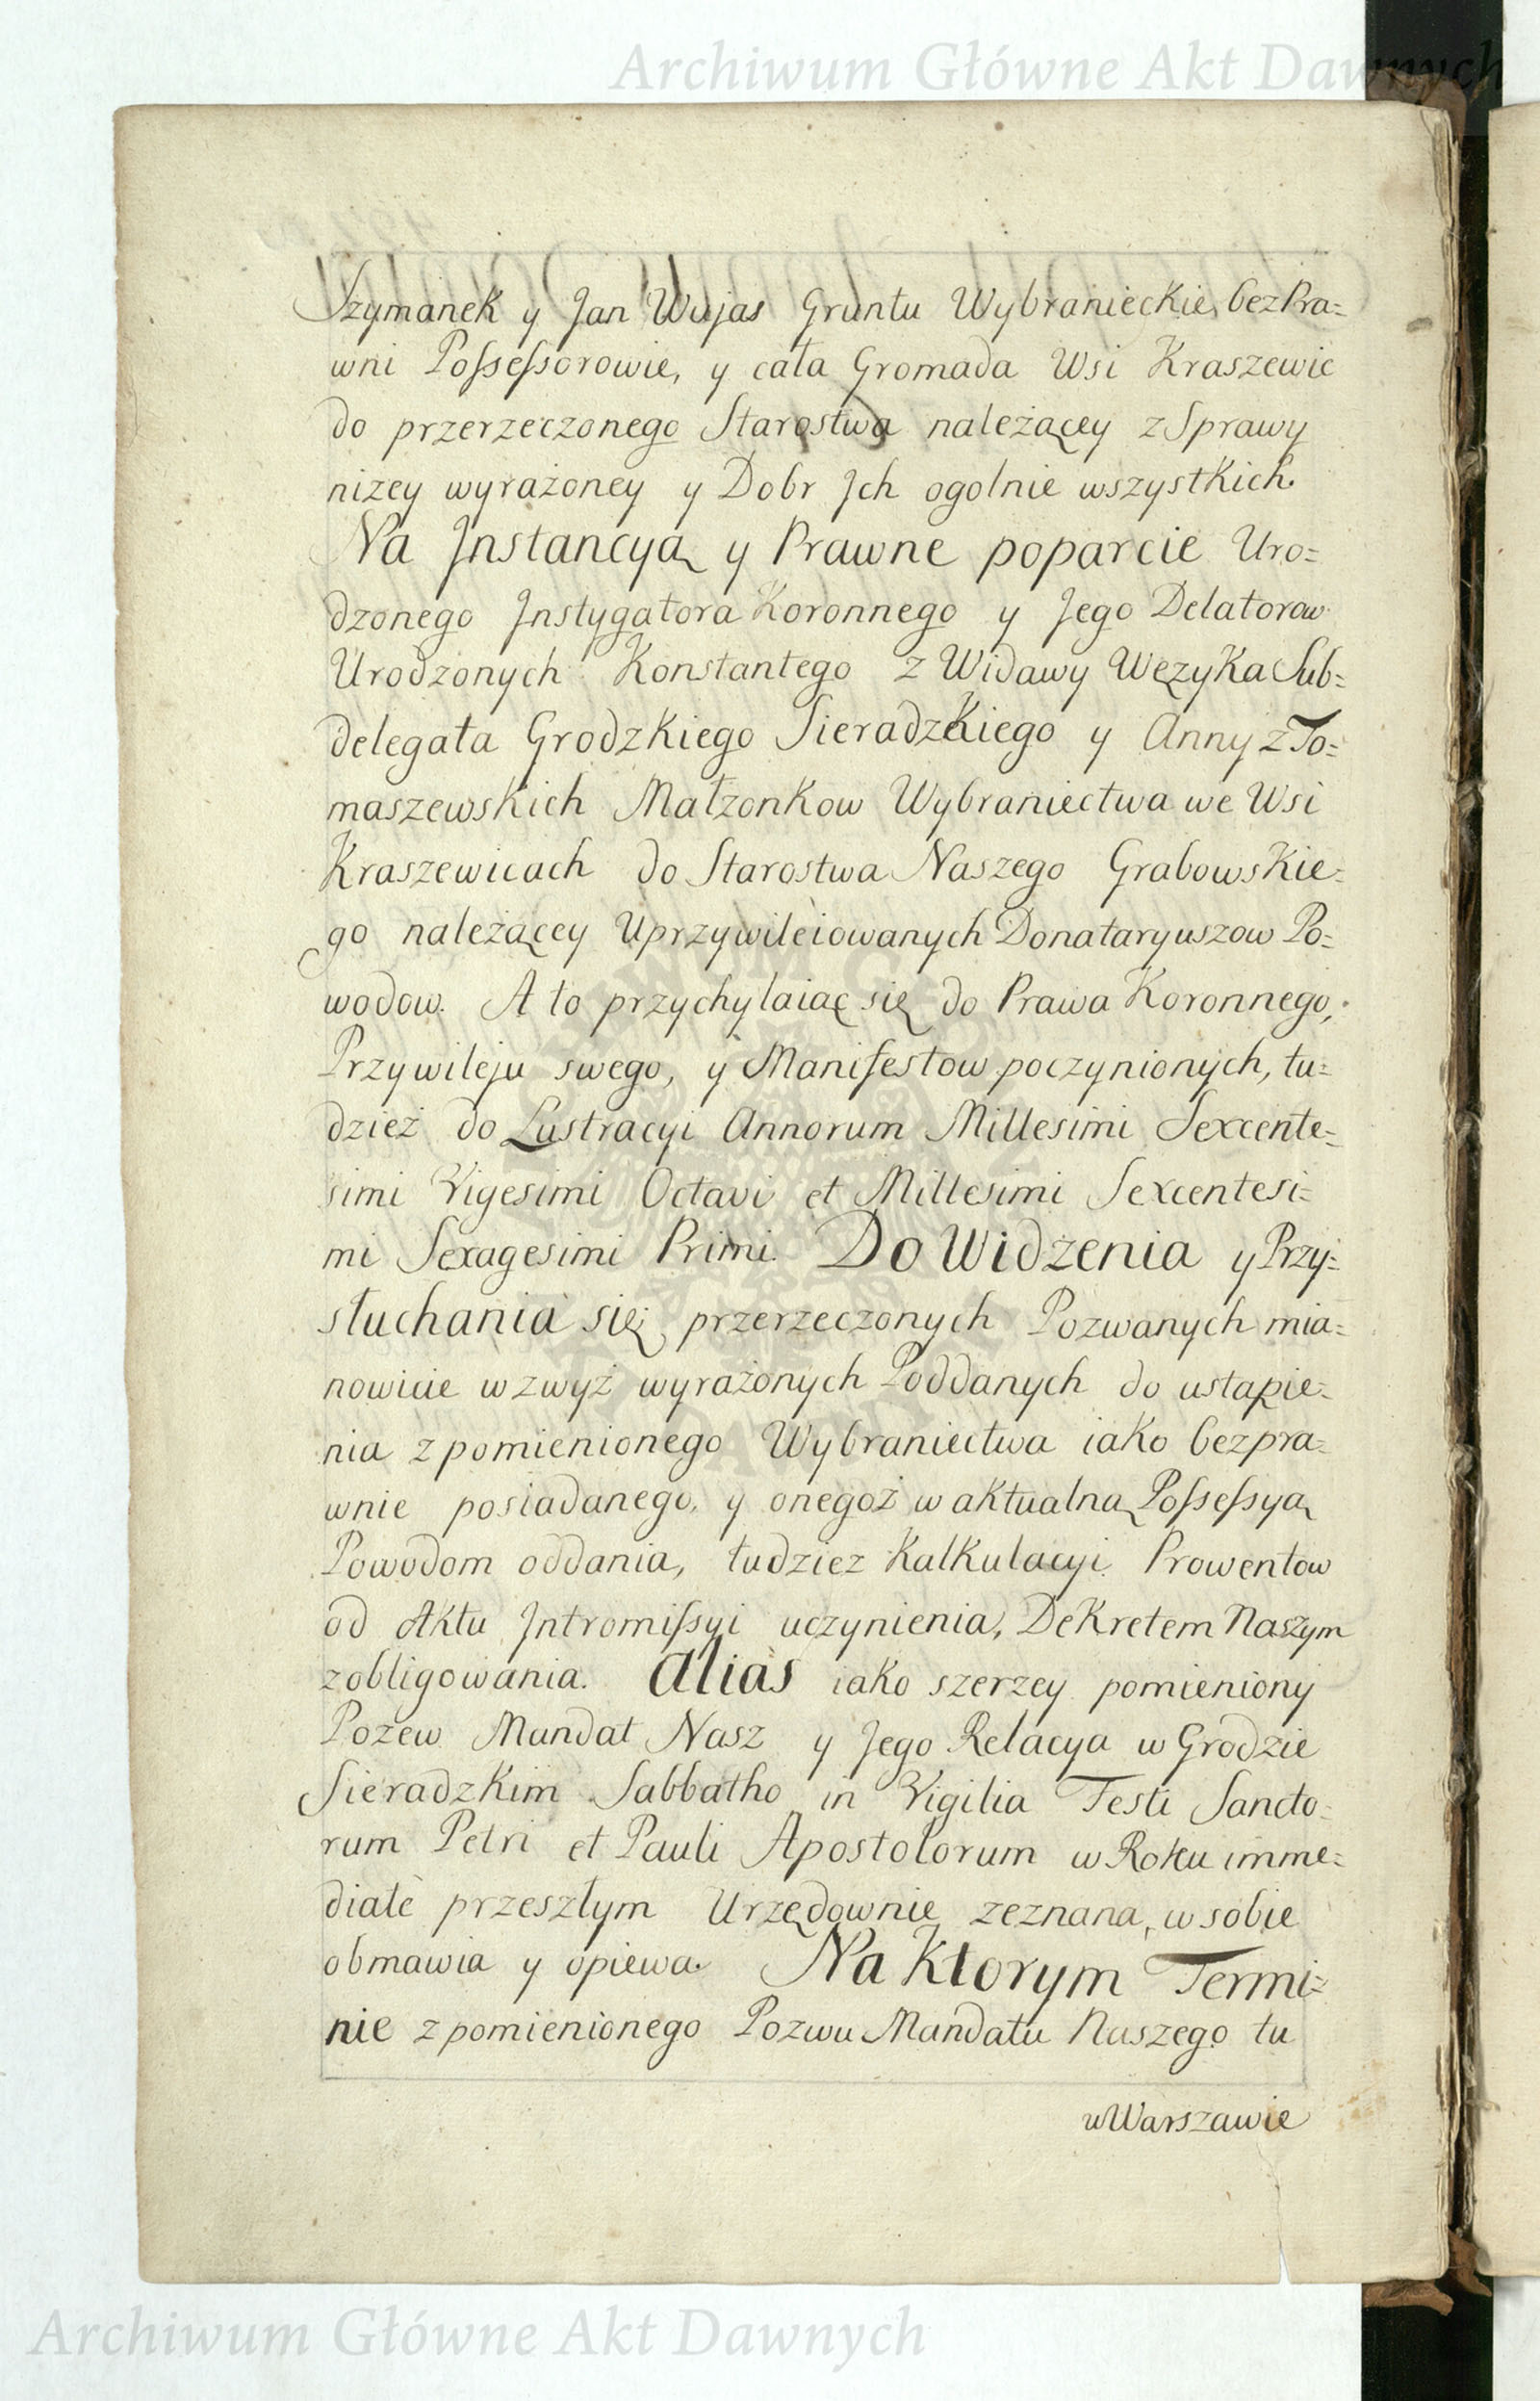 Archiwum Główne Akt Dawnych
Szymanek y Jan Wujas Gruntu Wybranieckie, bez Pra=
wni Possessorowie, y cała Gromada Wsi Kraszewic
do przerzeczonego Starostwa należącey z Sprawy
niżey wyrażoney y Dobr Jch ogolnie wszystkich.
Na Jnstancyą y Prawne poparcie Uro=
dzonego Jnstygatora Koronnego y Jego Delatorow
Urodzonych Konstantego z Widawy Węzyka Sub=
delegata Grodzkiego Sieradzkiego y Anny z To=
maszewskich Małzonkow Wybraniectwa we Wsi
Kraszewicach do Starostwa Naszego Grabowskie=
go należącey Uprzywileiowanych Donataryuszow Po=
wodow. A to przychylaiąc się do Prawa Koronnego,
Przywileju swego, y Manifestow poczynionych, tu=
dzież do Lustracyi Annorum Millesimi Sexcente=
simi Vigesimi Octavi et Millesimi Sexcentesi=
mi Sexagesimi Primi. Do Widzenia y Przy=
słuchania się przerzeczonych Pozwanych mia=
nowicie wzwyż wyrażonych Poddanych do ustąpie=
nia z pomienionego Wybraniectwa iako bezpra=
wnie posiadanego, y onegoż w aktualną Possessyą
Powodom oddania, tudziez Kalkulacyi Prowentow
od Aktu Jntromissyi uczynienia, Dekretem Naszym
zobligowania. Alias iako szerzey pomieniony
Pozew Mandat Nasz y Jego Relacya w Grodzie
Sieradzkim Sabbatho in Vigilia Festi Sancto=
rum Petri et Pauli Apostolorum w Roku imme=
diate przeszłym Urzędownie zeznana, w sobie
obmawia y opiewa. Na Ktorym Termi=
nie z pomienionego Pozwu Mandatu Naszego tu
w Warszawie
Archiwum Główne Akt Dawnych